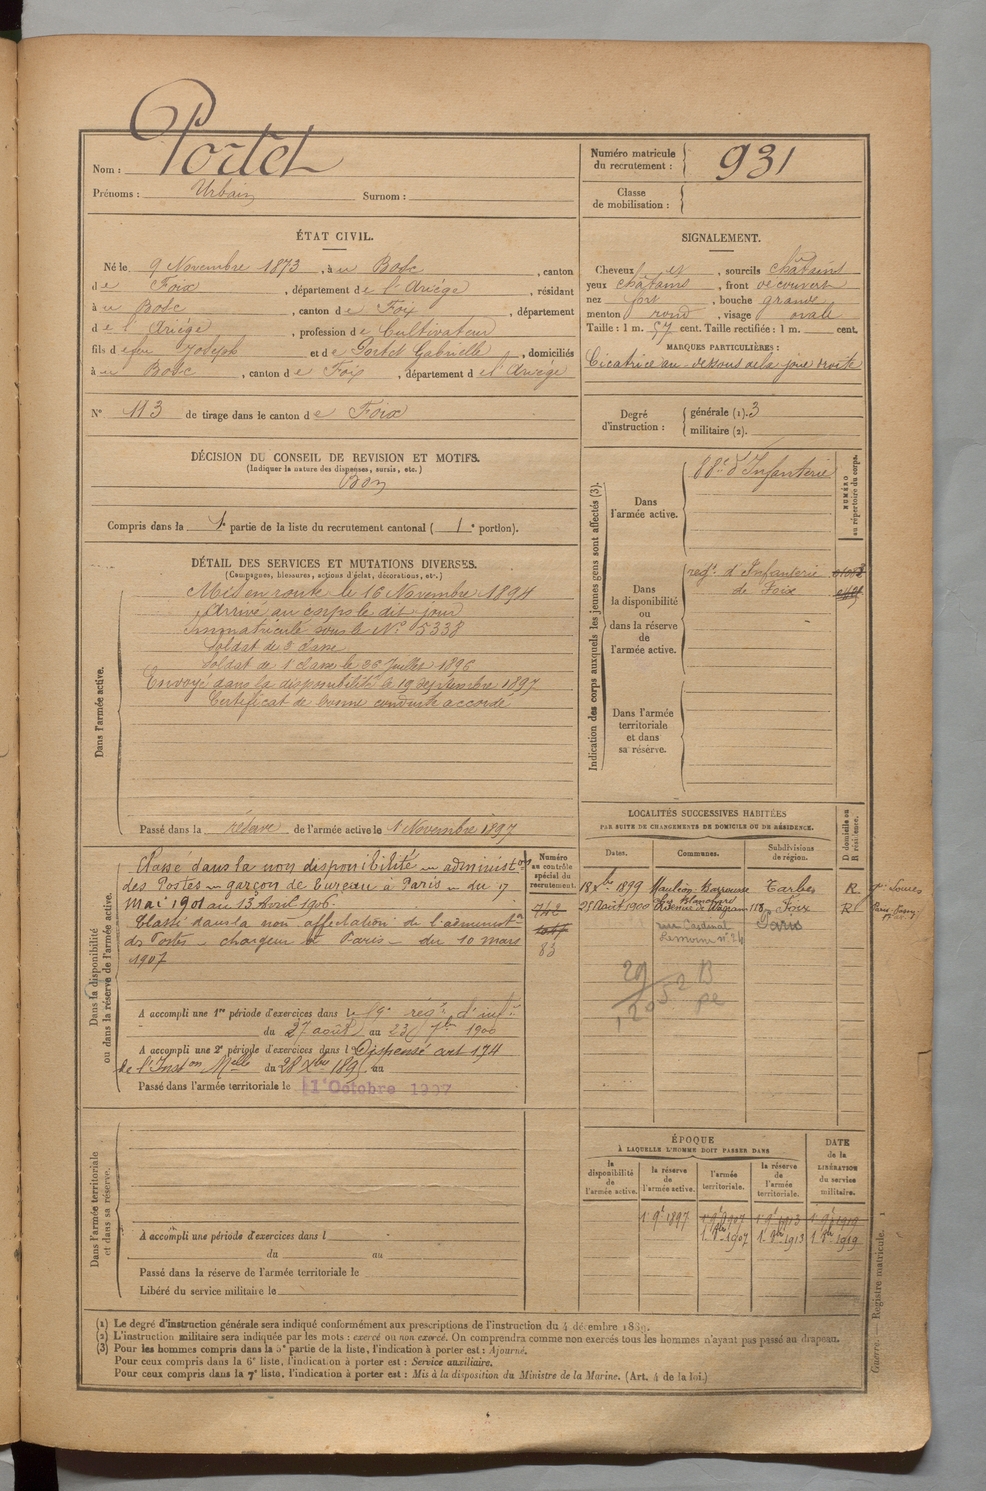 Portet
Nom :
Prénoms : Urbain Surnom :
Numéro matricule du recrutement : 931
Classe de mobilisation :
ÉTAT CIVIL.
Né le 9 Novembre 1873, à u Bosc, canton
d e Foix, département d e l'Ariège, résidant
à u Bosc, canton d e Foix, département
d e l'Ariége, profession d e Cultivateur
fils d e feu Joseph et d e Portet Gabrielle, domiciliés
à u Bosc, canton d e Foix, département d e l'Ariége
N° 113 de tirage dans le canton d e Foix
SIGNALEMENT.
Cheveux et, sourcils châtains
yeux châtains, front découvert
nez fort, bouche grande
menton rond, visage ovale
Taille : 1 m. 57 cent. Taille rectifiée : 1 m. cent.
MARQUES PARTICULIÈRES :
Cicatrice au-dessous de la joue droite
Degré d'instruction :
générale (1). 3
militaire (2).
DÉCISION DU CONSEIL DE REVISION ET MOTIFS.
(Indiquer la nature des dispenses, sursis, etc.)
Bon
Compris dans la 1e partie de la liste du recrutement cantonal ( 1e portion).
DÉTAIL DES SERVICES ET MUTATIONS DIVERSES.
(Campagnes, blessures, actions d'éclat, décorations, etc.)
Dans l'armée active.
Mis en route le 16 Novembre 1894
Arrivé au corps le dit jour
Immatriculé sous le N° 5338
Soldat de 2 classe
Soldat de 1 classe le 26 Juillet 1896
Envoyé dans la disponibilité le 19 septembre 1897
Certificat de bonne conduite accordé
Passé dans la réserve de l'armée active le 1 Novembre 1897
Indication des corps auxquels les jeunes gens sont affectés (3).
NUMÉRO au répertoire du corps.
Dans l'armée active.
88e d'Infanterie
Dans la disponibilité ou dans la réserve de l'armée active.
regt. d'Infanterie
de Foix
Dans l'armée territoriale et dans sa réserve.
Dans la disponibilité ou dans la réserve de l'armée active.
Classé dans la non disponibilité administon
des Postes garçon de bureau à Paris du 7
Mai 1901 au 13 Avril 1906.
Classé dans la non affectation de l'administon
des Postes chargeur à Paris du 10 mars
1907
Numéro au contrôle spécial du recrutement.
742
83
A accompli une 1re période d'exercices dans le 19e rést. d'inf.ie
du 27 août au 23 7bre 1900
A accompli une 2e période d'exercices dans l Dispensé art 174
de l'Inston Melle du 28 Xbre 1895 au
Passé dans l'armée territoriale le 1er Octobre 1907
LOCALITÉS SUCCESSIVES HABITÉES
PAR SUITE DE CHANGEMENTS DE DOMICILE OU DE RÉSIDENCE.
Dates. Communes. Subdivisions de région. D domicile ou R résidence.
18 Xbre 1899 Mauléon-Barousse Tarbes R
25 Août 1900 Avenue de Wagram 118 Foix R
rue Cardinal Lemoine n° 26 Paris
Dans l'armée territoriale et dans sa réserve.
A accompli une période d'exercices dans l
du au
Passé dans la réserve de l'armée territoriale le
Libéré du service militaire le
ÉPOQUE
À LAQUELLE L'HOMME DOIT PASSER DANS
la disponibilité de l'armée active.
la réserve de l'armée active.
l'armée territoriale.
la réserve de l'armée territoriale.
DATE de la LIBÉRATION du service militaire.
1 9e 1897 1 9e 1907 1 9e 1913 1 9e 1919
1. 8bre 1907 1. 8bre 1913 1. 8bre 1919
(1) Le degré d'instruction générale sera indiqué conformément aux prescriptions de l'instruction du 4 décembre 1889.
(2) L'instruction militaire sera indiquée par les mots : exercé ou non exercé. On comprendra comme non exercés tous les hommes n'ayant pas passé au drapeau.
(3) Pour les hommes compris dans la 5e partie de la liste, l'indication à porter est : Ajourné.
Pour ceux compris dans la 6e liste, l'indication à porter est : Service auxiliaire.
Pour ceux compris dans la 7e liste, l'indication à porter est : Mis à la disposition du Ministre de la Marine. (Art. 4 de la loi.)
Guerre. — Registre matricule. 1